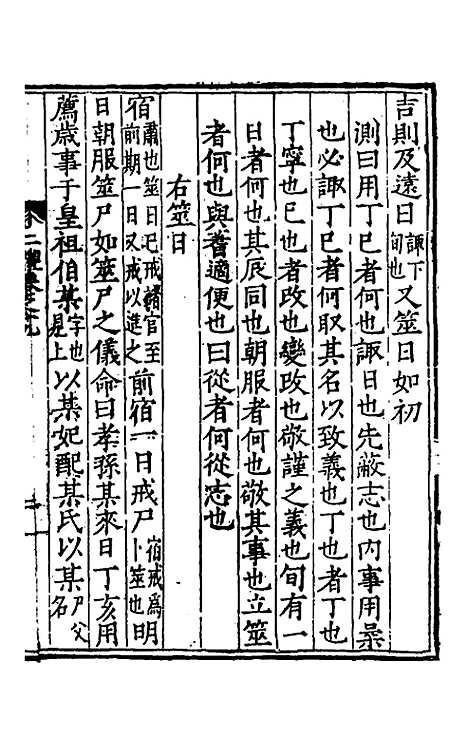 吉則及遠日諏下旬也又筮日如初
測曰用丁巳者何也諏日也先蔽志也內事用柔
也必諏丁巳者何取其名以致義也丁也者丁也
丁寧也巳也者改也變改也敬謹之義也旬有一
日者何也其辰同也朝服者何也敬其事也立筮
者何也與蓍適便也曰從者何從志也
右筮日
宿肅也筮日已戒諸官至前期一日又戒以進之前宿一日戒尸宿戒爲卜筮也明
日朝服筮尸如筮日之儀命曰孝孫某來日丁亥用
薦歲事于皇祖伯某字也見上以某妃配某氏以某尸父名